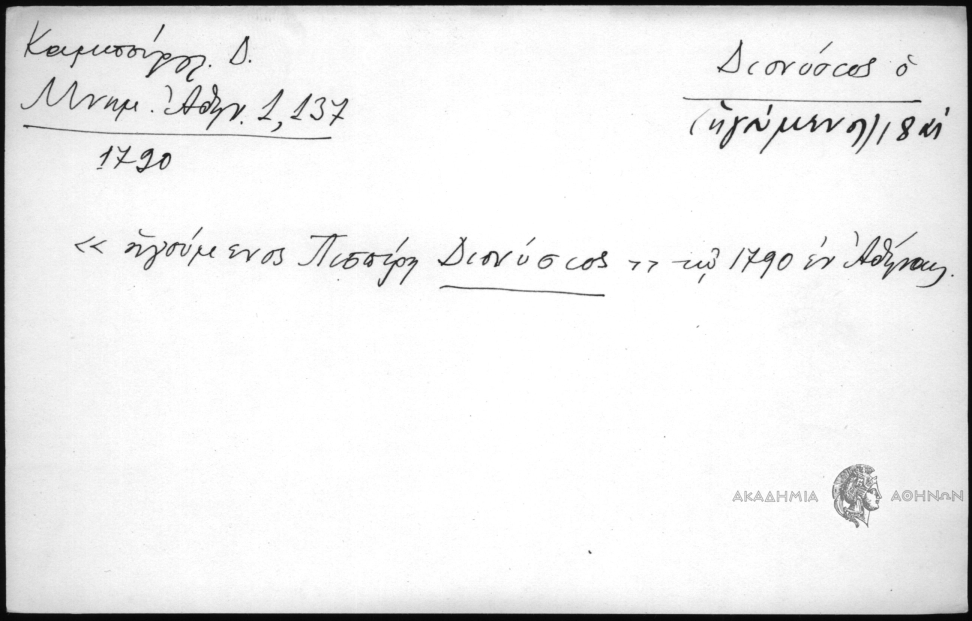 Καμπούργλ. Δ.
Μνημ. Ἀθην. 1, 137
1790
Διονύσιος ὁ
(ἡγούμενος) 18 αἰ
« ἡγούμενος Πεντέλη Διονύσιος » τῷ 1790 ἐν Ἀθήναις.
ΑΚΑΔΗΜΙΑ ΑΘΗΝΩΝ